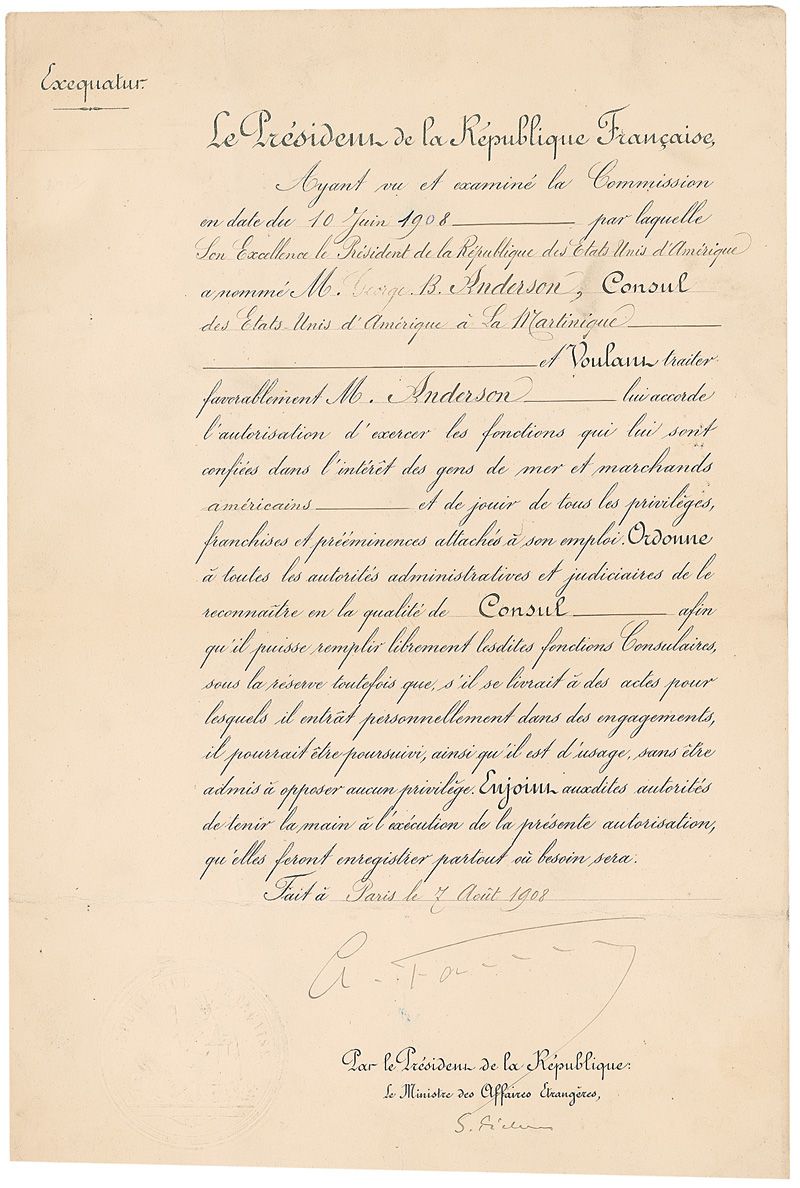 Exequatur.
Le Président de la République Française,
Ayant vu et examiné la Commission
en date du 10 Juin 1908 par laquelle
Son Excellence le Président de la République des Etats-Unis d'Amérique
a nommé M. George. B. Anderson, Consul
des Etats-Unis d'Amérique à La Martinique
et Voulant traiter
favorablement M. Anderson lui accorde
l'autorisation d'exercer les fonctions qui lui sont
confiées dans l'intérêt des gens de mer et marchands
américains et de jouir de tous les privilèges,
franchises et prééminences attachés à son emploi. Ordonne
à toutes les autorités administratives et judiciaires de le
reconnaître en la qualité de Consul afin
qu'il puisse remplir librement lesdites fonctions Consulaires,
sous la réserve toutefois que, s'il se livrait à des actes pour
lesquels il entrât personnellement dans des engagements,
il pourrait être poursuivi, ainsi qu'il est d'usage, sans être
admis à opposer aucun privilège. Enjoint auxdites autorités
de tenir la main à l'exécution de la présente autorisation,
qu'elles feront enregistrer partout où besoin sera.
Fait à Paris le 7 Août 1908
Par le Président de la République:
Le Ministre des Affaires Etrangères,